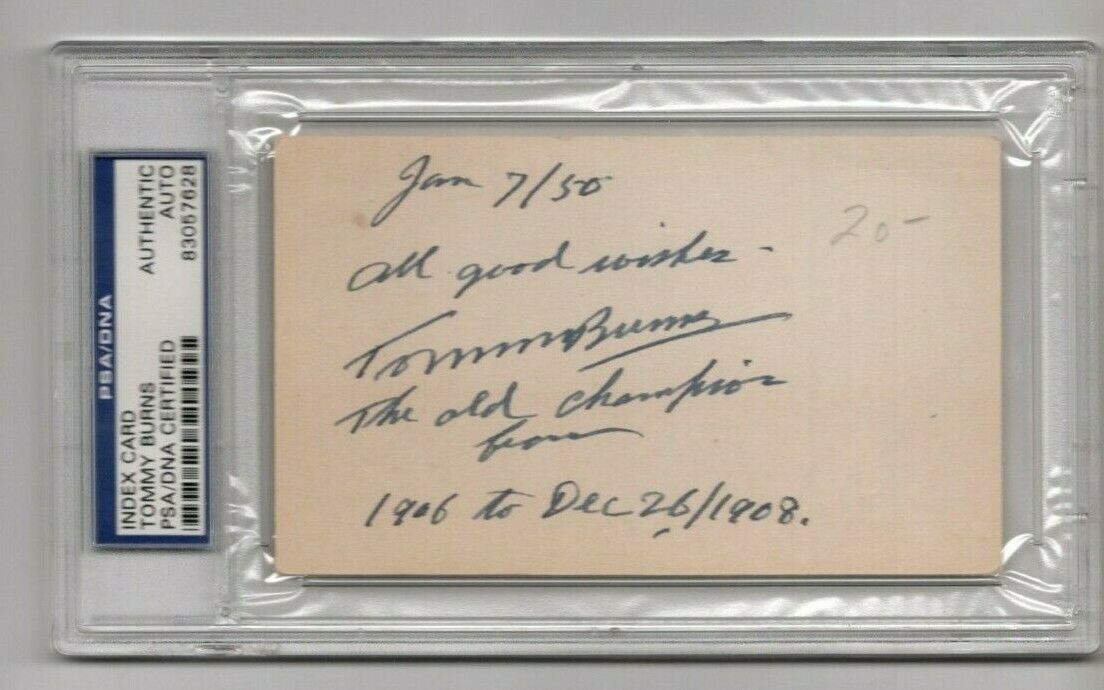 PSA/DNA
INDEX CARD
TOMMY BURNS
PSA/DNA CERTIFIED
AUTHENTIC
AUTO
83057628
Jan 7/50
20-
All good wishes -
Tommy Burns
The old Champion
from
1906 to Dec 26/1908.